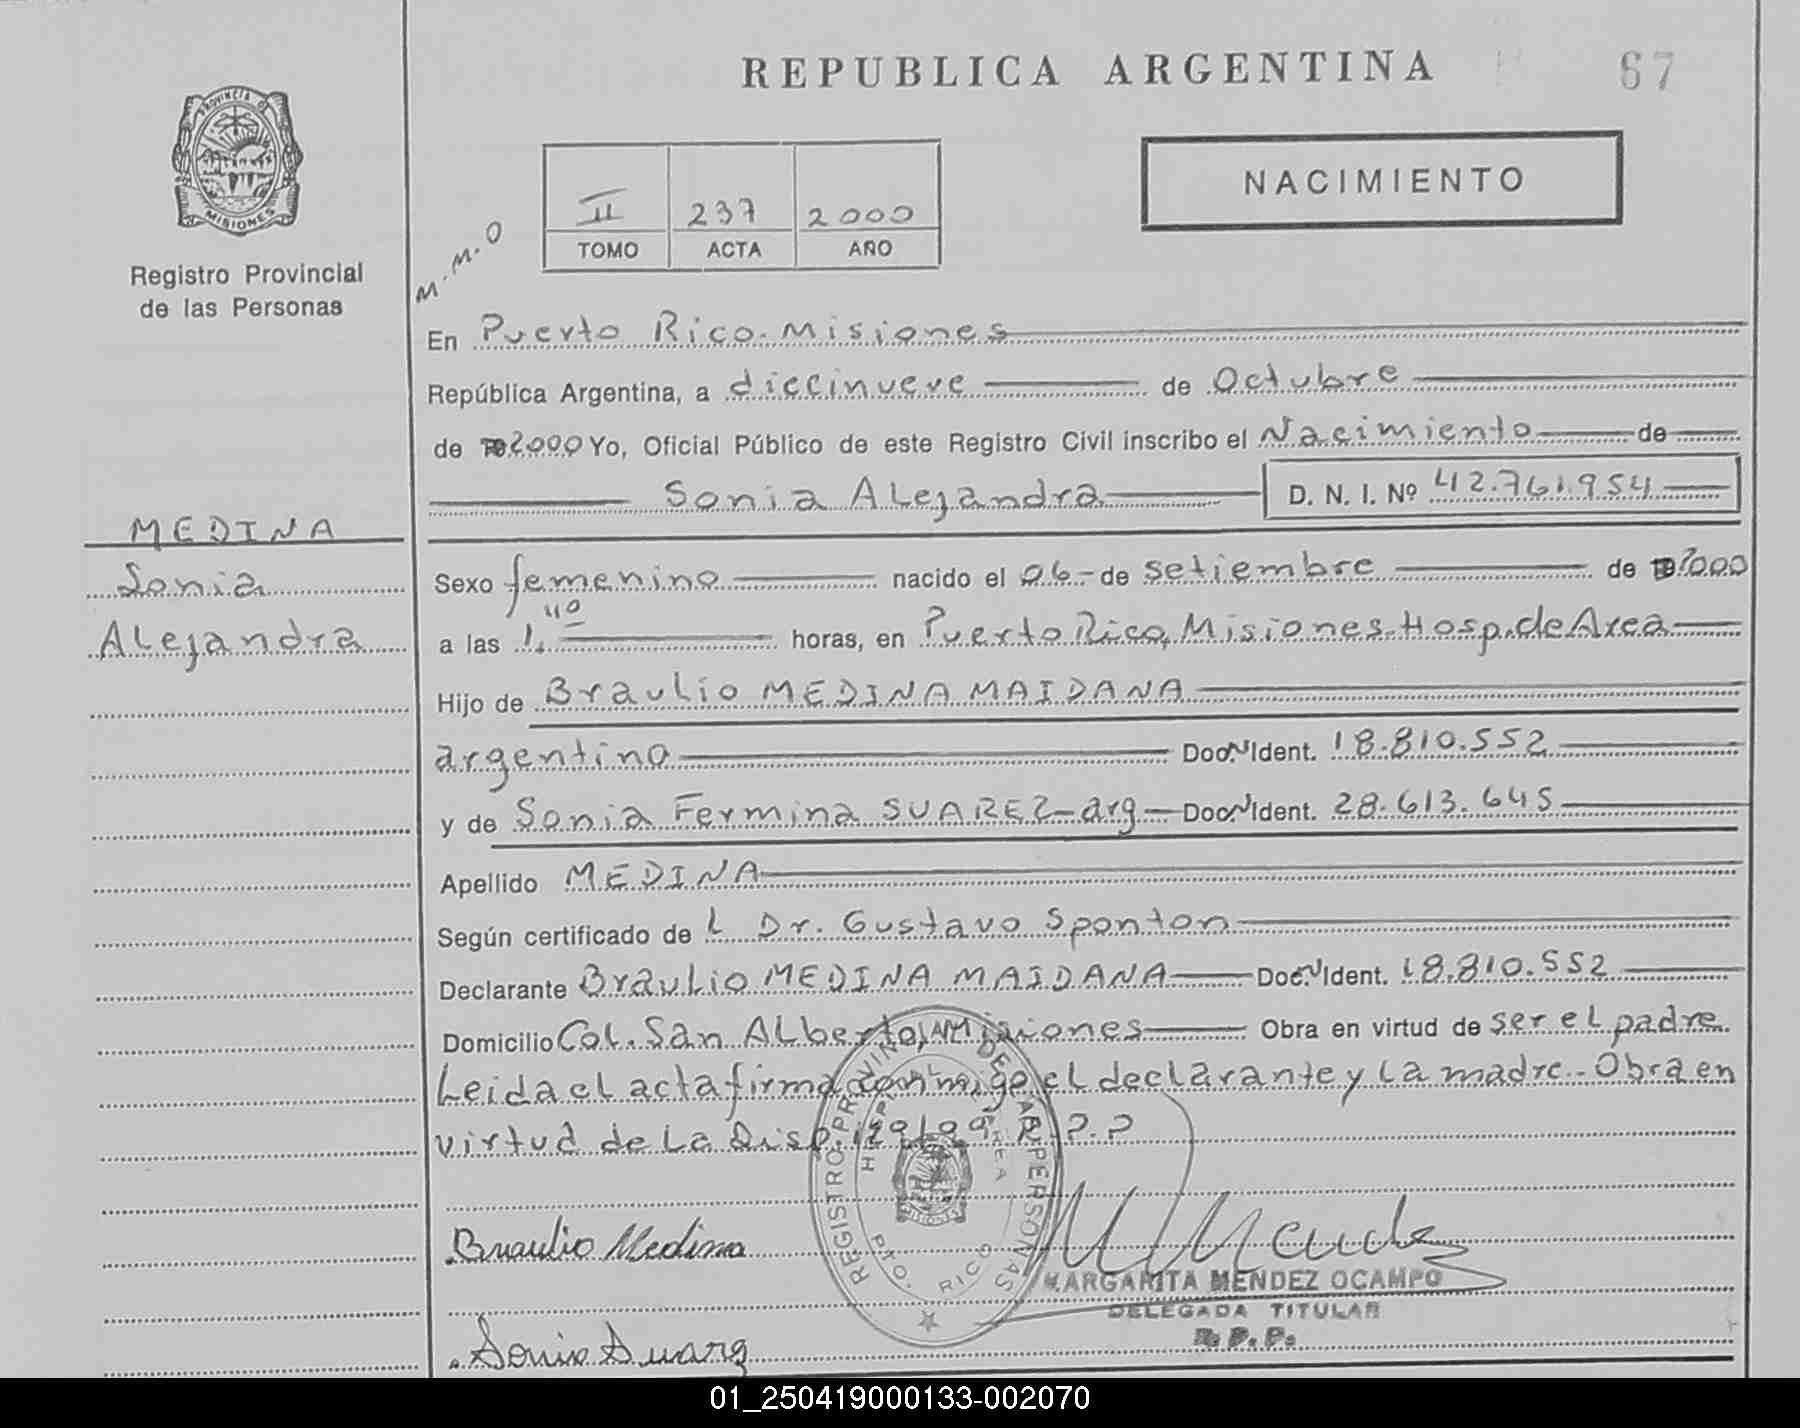 REPUBLICA ARGENTINA
67
PROVINCIA D
MISIONES
Registro Provincial
de las Personas
NACIMIENTO
II 237 2000
TOMO ACTA AÑO
M.M.O
En Puerto Rico. Misiones
República Argentina, a diecinueve de Octubre
de 2000 Yo, Oficial Público de este Registro Civil inscribo el Nacimiento de
Sonia Alejandra D. N. I. Nº 42.761.954
MEDINA
Sonia
Alejandra
Sexo femenino nacido el 06 - de setiembre de 2000
a las 1,40 horas, en Puerto Rico, Misiones. Hosp. de Area
Hijo de Braulio MEDINA MAIDANA
argentino Doc. N Ident. 18.810.552
y de Sonia Fermina SUAREZ - arg - Doc. N Ident. 28.613.645
Apellido MEDINA
Según certificado de L Dr. Gustavo Sponton
Declarante Braulio MEDINA MAIDANA Doc. N Ident. 18.810.552
Domicilio Col. San Alberto, Misiones Obra en virtud de ser el padre
Leida el acta firma conmigo el declarante y la madre - Obra en
virtud de La Disp. 129/99 R.P.P
REGISTRO PROVINCIAL DE LAS PERSONAS
HOSPITAL DE AREA
MISIONES
PTO. RICO
Braulio Medina
MMendez
MARGARITA MENDEZ OCAMPO
DELEGADA TITULAR
R. P. P.
Sonia Suarez
01_250419000133-002070